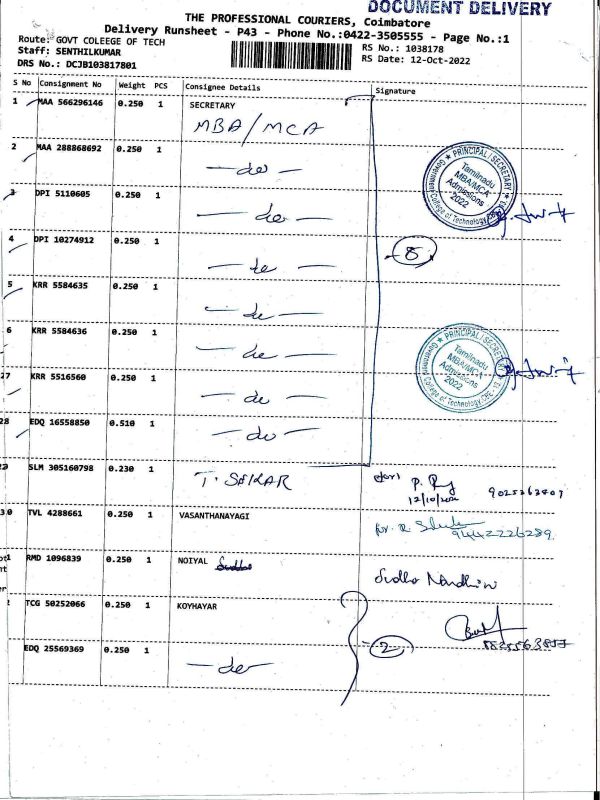 DOCUMENT DELIVERY
THE PROFESSIONAL COURIERS, Coimbatore
Delivery Runsheet - P43 - Phone No.:0422-3505555 - Page No.:1
Route: GOVT COLEEGE OF TECH
RS No.: 1038178
Staff: SENTHILKUMAR
RS Date: 12-Oct-2022
DRS No.: DCJB103817801
S No Consignment No Weight PCS Consignee Details Signature
1 MAA 566296146 0.250 1 SECRETARY
MBA/MCA
2 MAA 288868692 0.250 1
— do —
PRINCIPAL / SECRETARY
Tamilnadu
MBA/MCA
Admissions
2022
3 DPI 5110605 0.250 1
— do —
4 DPI 10274912 0.250 1
— do —
8
5 KRR 5584635 0.250 1
— do —
6 KRR 5584636 0.250 1
— do —
PRINCIPAL / SECRETARY
Tamilnadu
MBA/MCA
Admissions
2022
27 KRR 5516560 0.250 1
— do —
28 EDQ 16558850 0.510 1
— do —
SLM 305160798 0.230 1
T. SEKAR
12/10/2022
30 TVL 4288661 0.250 1 VASANTHANAYAGI
9442226289
RMD 1096839 0.250 1 NOIYAL
TCG 50252066 0.250 1 KOYHAYAR
EDQ 25569369 0.250 1
— do —
2